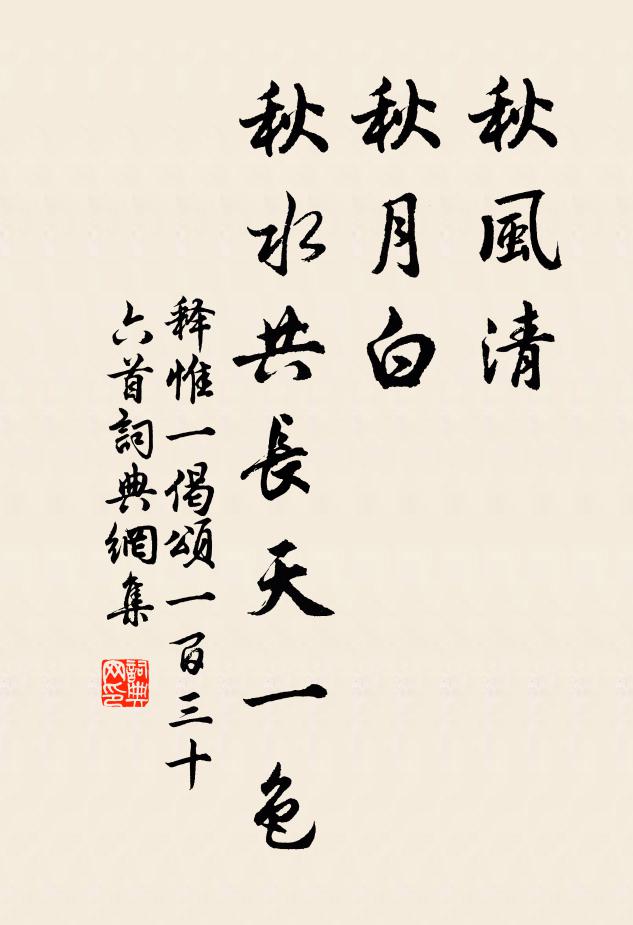 秋風清
秋月白
秋水共長天一色
释惟一偈頌一百三十
六首詞典網集
詞典
网印